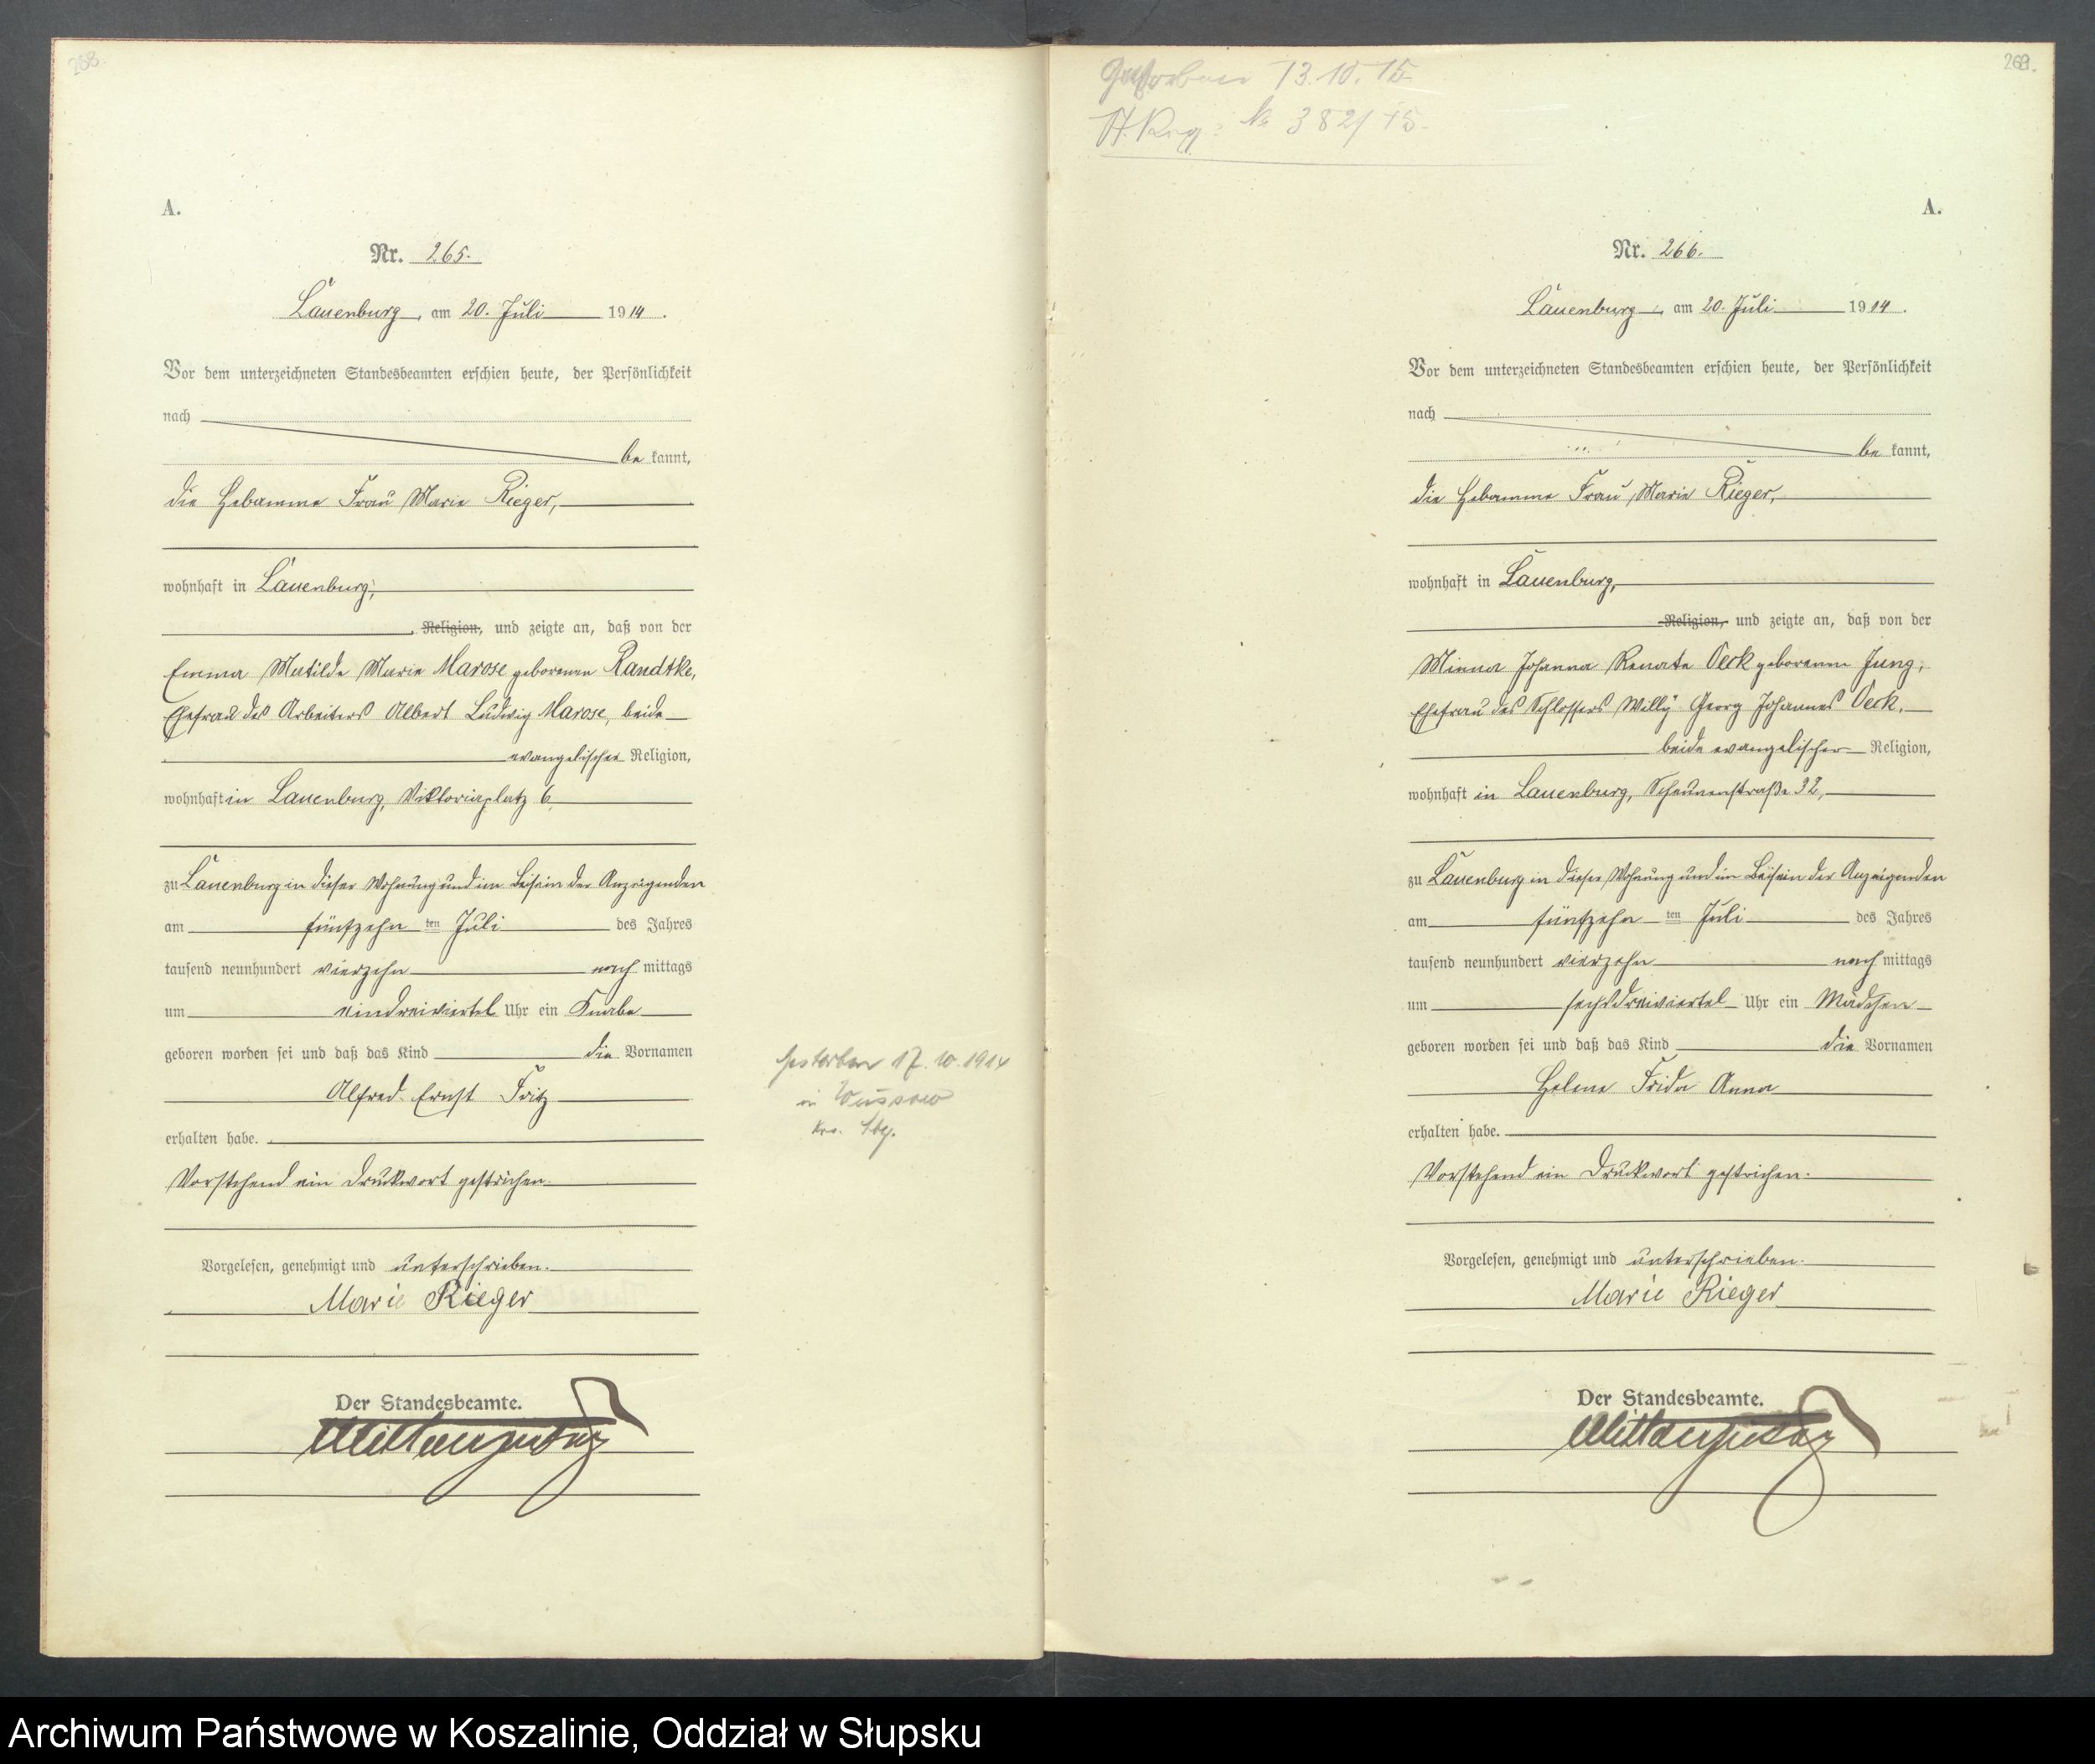 268.
A.
Nr. 265.
Lauenburg, am 20. Juli 1914.
Vor dem unterzeichneten Standesbeamten erschien heute, der Persönlichkeit
nach
be kannt,
die Hebamme Frau Marie Rieger,
wohnhaft in Lauenburg,
Religion, und zeigte an, daß von der
Emma Matilde Marie Marose geborenen Randtke,
Ehefrau des Arbeiters Albert Ludwig Marose, beide
evangelischer Religion,
wohnhaft in Lauenburg, Viktoriaplatz 6,
zu Lauenburg in dieser Wohnung und im Beisein der Anzeigenden
am fünfzehn ten Juli des Jahres
tausend neunhundert vierzehn nach mittags
um eindreiviertel Uhr ein Knabe
geboren worden sei und daß das Kind die Vornamen
Alfred Ernst Fritz
erhalten habe.
Vorstehend ein Druckwort gestrichen.
Vorgelesen, genehmigt und unterschrieben.
Marie Rieger
Der Standesbeamte.
gestorben 17.10.1914
in Wussow
Krs. Lbg.
269.
Gestorben 13.10.15.
St. Reg: No 382/15.
A.
Nr. 266.
Lauenburg, am 20. Juli 1914.
Vor dem unterzeichneten Standesbeamten erschien heute, der Persönlichkeit
nach
be kannt,
die Hebamme Frau Marie Rieger,
wohnhaft in Lauenburg,
Religion, und zeigte an, daß von der
Minna Johanna Renate Oeck geborenen Jung,
Ehefrau des Schlossers Willy Georg Johannes Oeck,
beide evangelischer Religion,
wohnhaft in Lauenburg, Scheunenstraße 32,
zu Lauenburg in dieser Wohnung und im Beisein der Anzeigenden
am fünfzehn ten Juli des Jahres
tausend neunhundert vierzehn nach mittags
um sechsdreiviertel Uhr ein Mädchen
geboren worden sei und daß das Kind die Vornamen
Helene Frida Anna
erhalten habe.
Vorstehend ein Druckwort gestrichen.
Vorgelesen, genehmigt und unterschrieben.
Marie Rieger
Der Standesbeamte.
Archiwum Państwowe w Koszalinie, Oddział w Słupsku